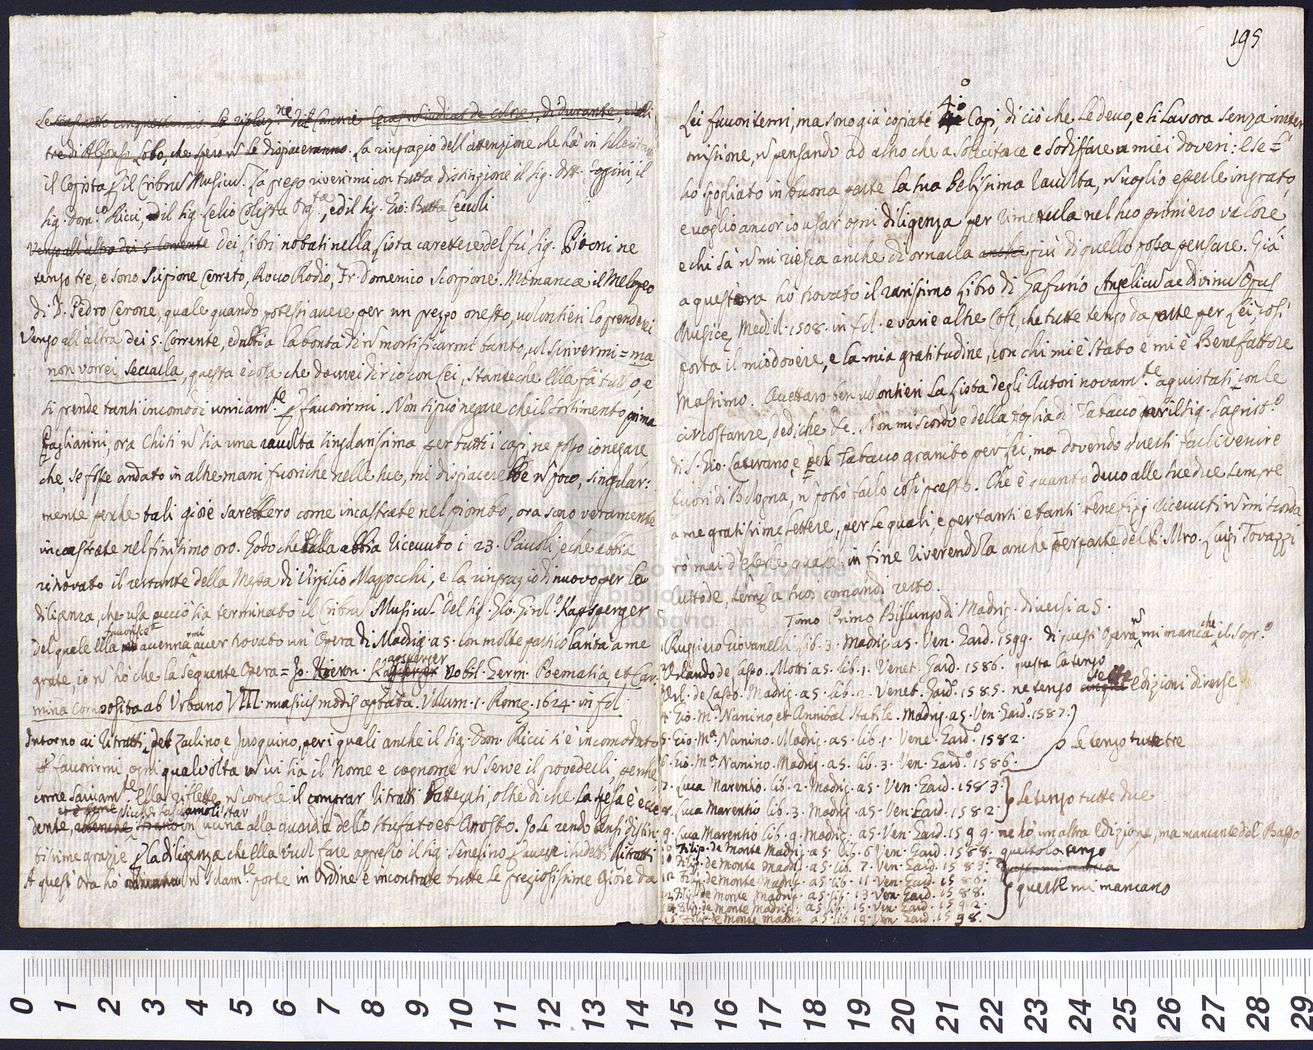 tre di Alfonso Lobo, che spero non le dispiaceranno. La ringrazio dell'attenzione che hà in
il Copista p il Cribrum Musicum. La prego riverirmi con tutta distinzione il Sig. Dott.
Sig. Dom.co Ricci, Sig. Celio Colista ed il Sig. Gio: Batta
Vengo all'altra dei 5 corrente Dei libri notati nella Lista carattere del fu Sig. Pitoni ne
tengo tre, e sono Scipione Cerreto, Rocco Rodio, Fr. Domenico Scorpione. Mi manca il Melopeo
di D. Pedro Cerone, quale quando potessi avere per un prezzo onesto, volontieri lo prenderei
Vengo all'altra dei 5. Corrente, la bontà di n mortificarmi tanto, col scrivermi = ma
non vorrei seccarla, questa è cosa che dovrei dir io con Lei, stanteche Ella fà tutto, e
si prende tanti incomodi unicam.te p favorirmi. Non si può negare che il sortimento prima
ora Chiti n sia una raccolta singolarissima per tutti i capi, ne posso io negare
che, se fosse andato in altre mani fuoriche nelle sue, mi dispiacerebbe n poco, singolar:
mente perche tali gioie sarebbero come incastrate nel piombo, ora sono veramente
incastrate nel finissimo oro. Godo che abbia ricevuto i 23. Pavoli, e che abbia
ritrovato il restante della Messa di Virgilio Mazzocchi, e la ringrazio di nuovo per la
diligenza, che usa accio sia terminato il Cribrum Musicum del Sig. Gio. Girol. Kapsperger
del quale ella mi favorisce aver trovato un Opera di Madrig. a 5. con molte partic
grate, io n ho che la seguente Opera = Jo. Hieron. Kapsperger Nobil. Germ. Poematia et Car.
mina composita ab Urbano VIII. musicis modis aptata. Volum. 1. Romæ 1624. in fol.
Intorno ai Ritratti del Zarlino e Jusquino, per i quali anche il Sig. Don Ricci si è incomodato
p favorirmi, ogni qual volta n vi sia il Nome e cognome n serve il provederli, perche
come saviam.te Ella riflette n compie il comprar Ritratti
dente in cucina alla guardia dello Stufato et Arosto. Io le rendo
tissime grazie p la diligenza che ella vuol fare appresso il Sig. Senesino p avere Ritratti
A quest'ora ho n solam.te poste in ordine e incontrate tutte le preziosissime Gioie da
195
Lei favoritemi, ma sono già copiate 4.o Capi, di ciò che le devo, e si lavora senza inter
missione, n pensando ad altro che a sollecitare e sodisfare a miei doveri: e se
ho spogliato in buona parte la sua bellissima raccolta, n voglio esserle ingrato
e voglio ancor io usar ogni diligenza per rimetterla nel suo primiero valore
e chi sà n mi riesca anche di ornarla più di quello possa pensare. Già
a quest'ora ho trovato il rarissimo Libro di Gafurio Angelicu ac Divinu Opus
Musice, Mediol. 1508. in fol. e varie altre cose, che tutte tengo da parte per Lei, così
porta il mio dovere, e la mia gratitudine, con chi mi è stato e mi è Benefattore
Massimo. Aspettarò ben volontieri la Lista degli Autori novam.te aquistati con le
circostanze, dediche &c. Non mi scordo e della foglia di Tabacco per il Sig. Sagrist.o
di S. Gio. Laterano, e del Tabacco granito per Lei, ma dovendo questi farli venire
fuori di Bologna, n posso farlo così presto. Che è quanto devo alle sue due sempre
a me gratissime lettere, per le quali e per tanti e tanti benefizj ricevuti n mi
rò mai d'esserle grato. in fine riverendola anche per parte del P. Mro. Luigi Tovazzi
tutto de, lempo a suoi comandi resto.
Tomo Primo Bissungo di Madrig. diversi a 5.
Ruggiero Giovanelli lib. 3. Madrig. a 5. Ven. Gard. 1599. di quest'Opera mi manca che il Sopr.o
Orlando de Lasso. Motti a 5. lib. 1. Venet. Gard. 1586. questa la tengo
Orl. de Lasso. Madrig. a 5. lib. 2. Venet. Gard. 1585. ne tengo sette edizioni diverse
Gio. M.a Nanino et Annibal Stabile. Madrig. a 5. Ven. Gard.o 1587.
Gio. M.a Nanino. Madrig. a 5. lib. 1. Vene. Gard.o 1582. Le tengo tutte tre
Gio. M.a Nanino. Madrig. a 5. lib. 3. Ven. Gard.o 1586.
Luca Marentio lib. 2. Madrig. a 5. Ven. Gard. 1583. Le tengo tutte due
Luca Marentio lib. 3. Madrig. a 5. Ven. Gard. 1582.
Luca Marentio lib. 9. Madrig. a 5. Ven. Gard. 1599. ne hò un altra edizione, ma mancante del Basso
Filip. de Monte Madrig. a 5. lib. 6. Ven. Gard. 1588. questo la tengo
Filip. de Monte Madrig. a 5. lib. 7. Ven. Gard. 1583.
Filip. de Monte Madrig. a 5. lib. 11. Ven. Gard. 1586. queste mi mancano
Filip. de Monte Madrig. a 5. lib. 13. Ven. Gard. 1588.
Filip. de Monte Madrig. a 5. lib. 15. Ven. Gard. 1592.
Filip. de Monte Madri. a 5. lib. 19. Ven. Gard. 1598.
museo internazionale
e biblioteca della musica
di bologna
0 1 2 3 4 5 6 7 8 9 10 11 12 13 14 15 16 17 18 19 20 21 22 23 24 25 26 27 28 29